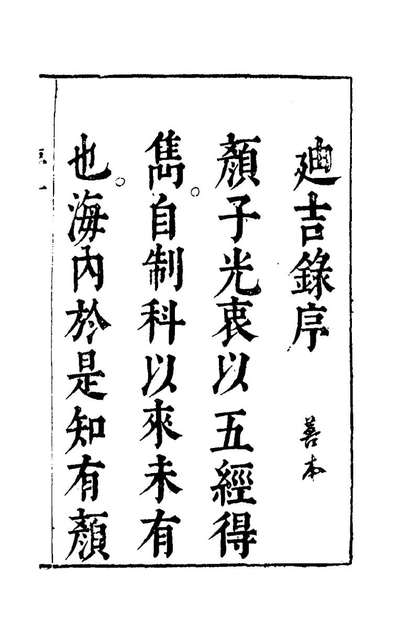 廸吉錄序
善本
顏子光衷以五經得
雋。自制科以來未有
也。海內於是知有顏